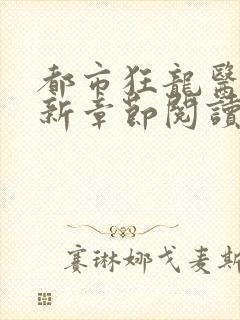 都市狂龍醫
新章節閱讀
赛琳娜戈麦斯